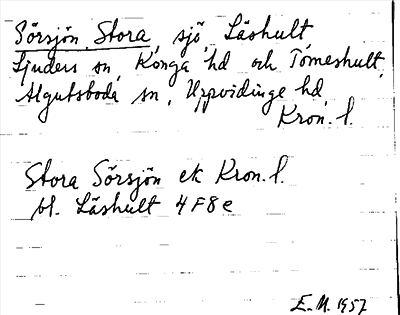 Sörsjön, Stora, sjö, Läshult
Ljuders sn, Konga hd och Tomeshult,
Algutsboda sn, Uppvidinge hd,
Kron. l.
Stora Sörsjön ek Kron. l.
bl. Läshult 4F8e
E. M. 1957